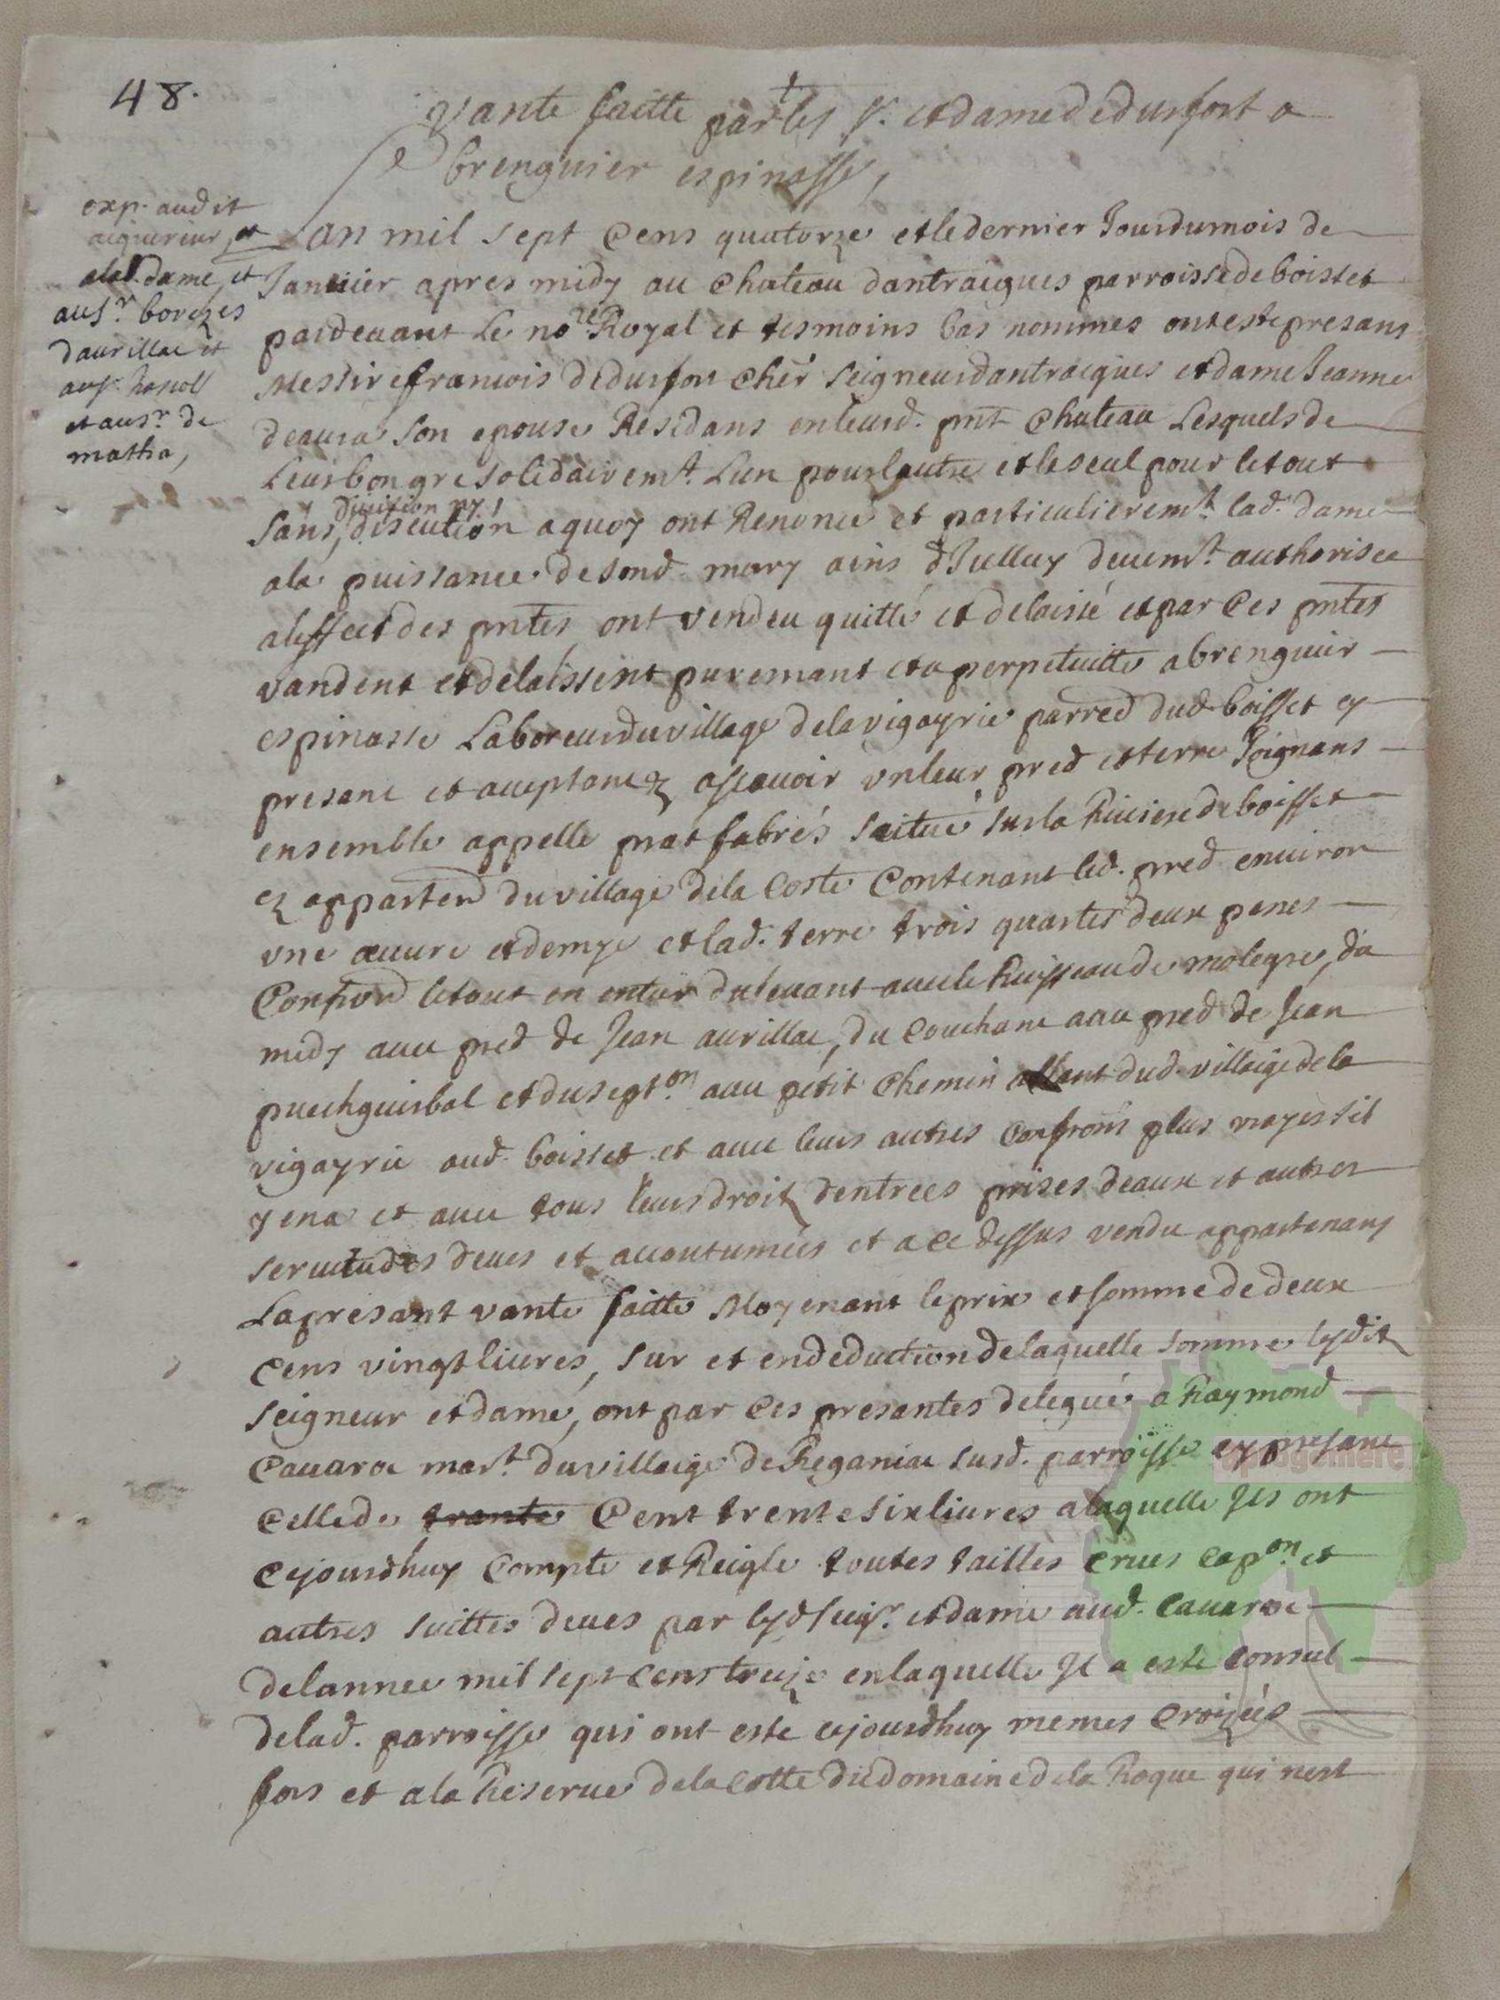 48.
vante faitte par les sr. et dame de durfort a
brenguier espinasse,
exp. audit
aquereur, et
a lad. dame, et
au sr. borezes
daurillac et
au sr.
et au sr. de
matha,
Lan mil sept cens quatorze et le dernier Jour du mois de
Januier apres midy au chateau dantraigues parroisse de boisset
pardeuant le nore Royal et tesmoins bas nommes ont este presans
Messire francois de durfort cher seigneur dantraigues et dame Jeanne
deaura son epouse Residans en leurd. pnt chateau Lesquels de
Leur bon gre solidairemt. Lun pour lautre et le seul pour le tout
sans diuition ny discution a quoy ont Renoncé et particulieremt. lad. dame
a la puissance de sond. mary ains dJcelluy deuemt. authorisee
a leffect des pntes ont vendeu quitté et delaissé et par ces pntes
vandent et delaissent puremant et a perpetuitte a brenguier
espinasse Laboreur du village de la vigayrie parred dud. boisset cy
presant et aceptant ascauoir vn leur pred et terre Joignans
ensemble appelle prat fabrés scitué sur la Riuiere de boisset
ez apparten du village de la coste contenant led. pred enuiron
vne œuure et demye et lad. terre trois quartes deux penes
Confrond le tout en entier du leuant auec le Ruisseau de molegre, du
midy auec pred de Jean aurillac, du couchant auec pred de Jean
puechguirbal et du septon. auec petit chemin allant dud. villaige de la
vigayrie aud. boisset et auec leurs autres confrons plus vrayes sil
y en a et auec tous leurs droitz dentrees prises deaux et autres
seruitudes deues et acoutumées et a ce dessus vendu appartenans
La presant vante faitte Moyenant le prix et somme de deux
cens vingt liures, sur et en deduction de laquelle somme lesdit
seigneur et dame, ont par ces presantes delegué a Raymond
Cauaroc mart. du villaige de Reganiac susd. parroisse cy presant
celle de trante cent trente six liures a laquelle Jls ont
cejourdhuy compte et Reigle toutes tailles crues capon. et
autres suittes deues par lesd. seigr. et dame aud. Cauaroc
de lannee mil sept cens treize en laquelle Jl a este consul
de lad. parroisse qui ont este cejourdhuy memes croizées
fors et a la Reserue de la cotte du domaine de la Roque qui nest
aplogemere